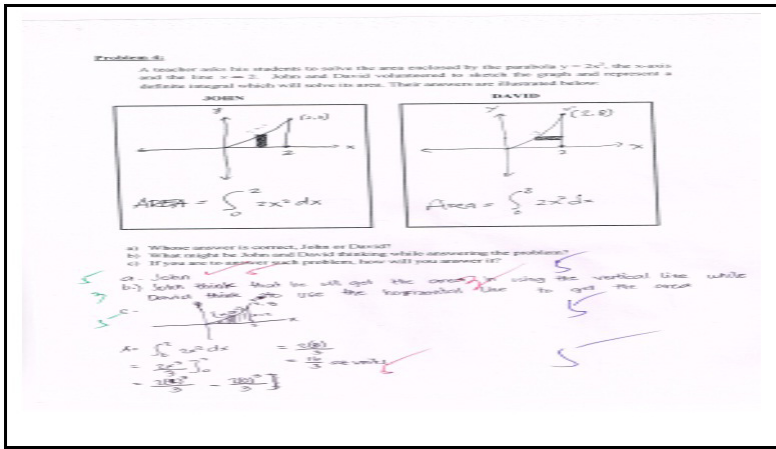 Problem 4:
A teacher asks his students to solve the area enclosed by the parabola y = 2x², the x-axis
and the line x = 2. John and David volunteered to sketch the graph and represent a
definite integral which will solve its area. Their answers are illustrated below:
JOHN DAVID
y (2,8) y (2,8)
x x
2 2
AREA = ∫₀² 2x² dx Area = ∫₀⁸ 2x² dx
a) Whose answer is correct, John or David?
b) What might be John and David thinking while answering the problem?
c) If you are to answer such problem, how will you answer it?
a - John
b.) John think that he will get the area in using the vertical line while
David think to use the horizontal line to get the area
c -
x
A = ∫₀² 2x² dx = 2(8)/3
= 2x³/3 ]₀² = 16/3 units
= 2(2)³/3 - 2(0)³/3 ]